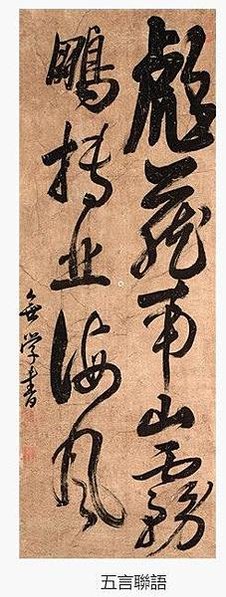 彪藏南山霧
鵬搏北海風
無学書
五言聯語